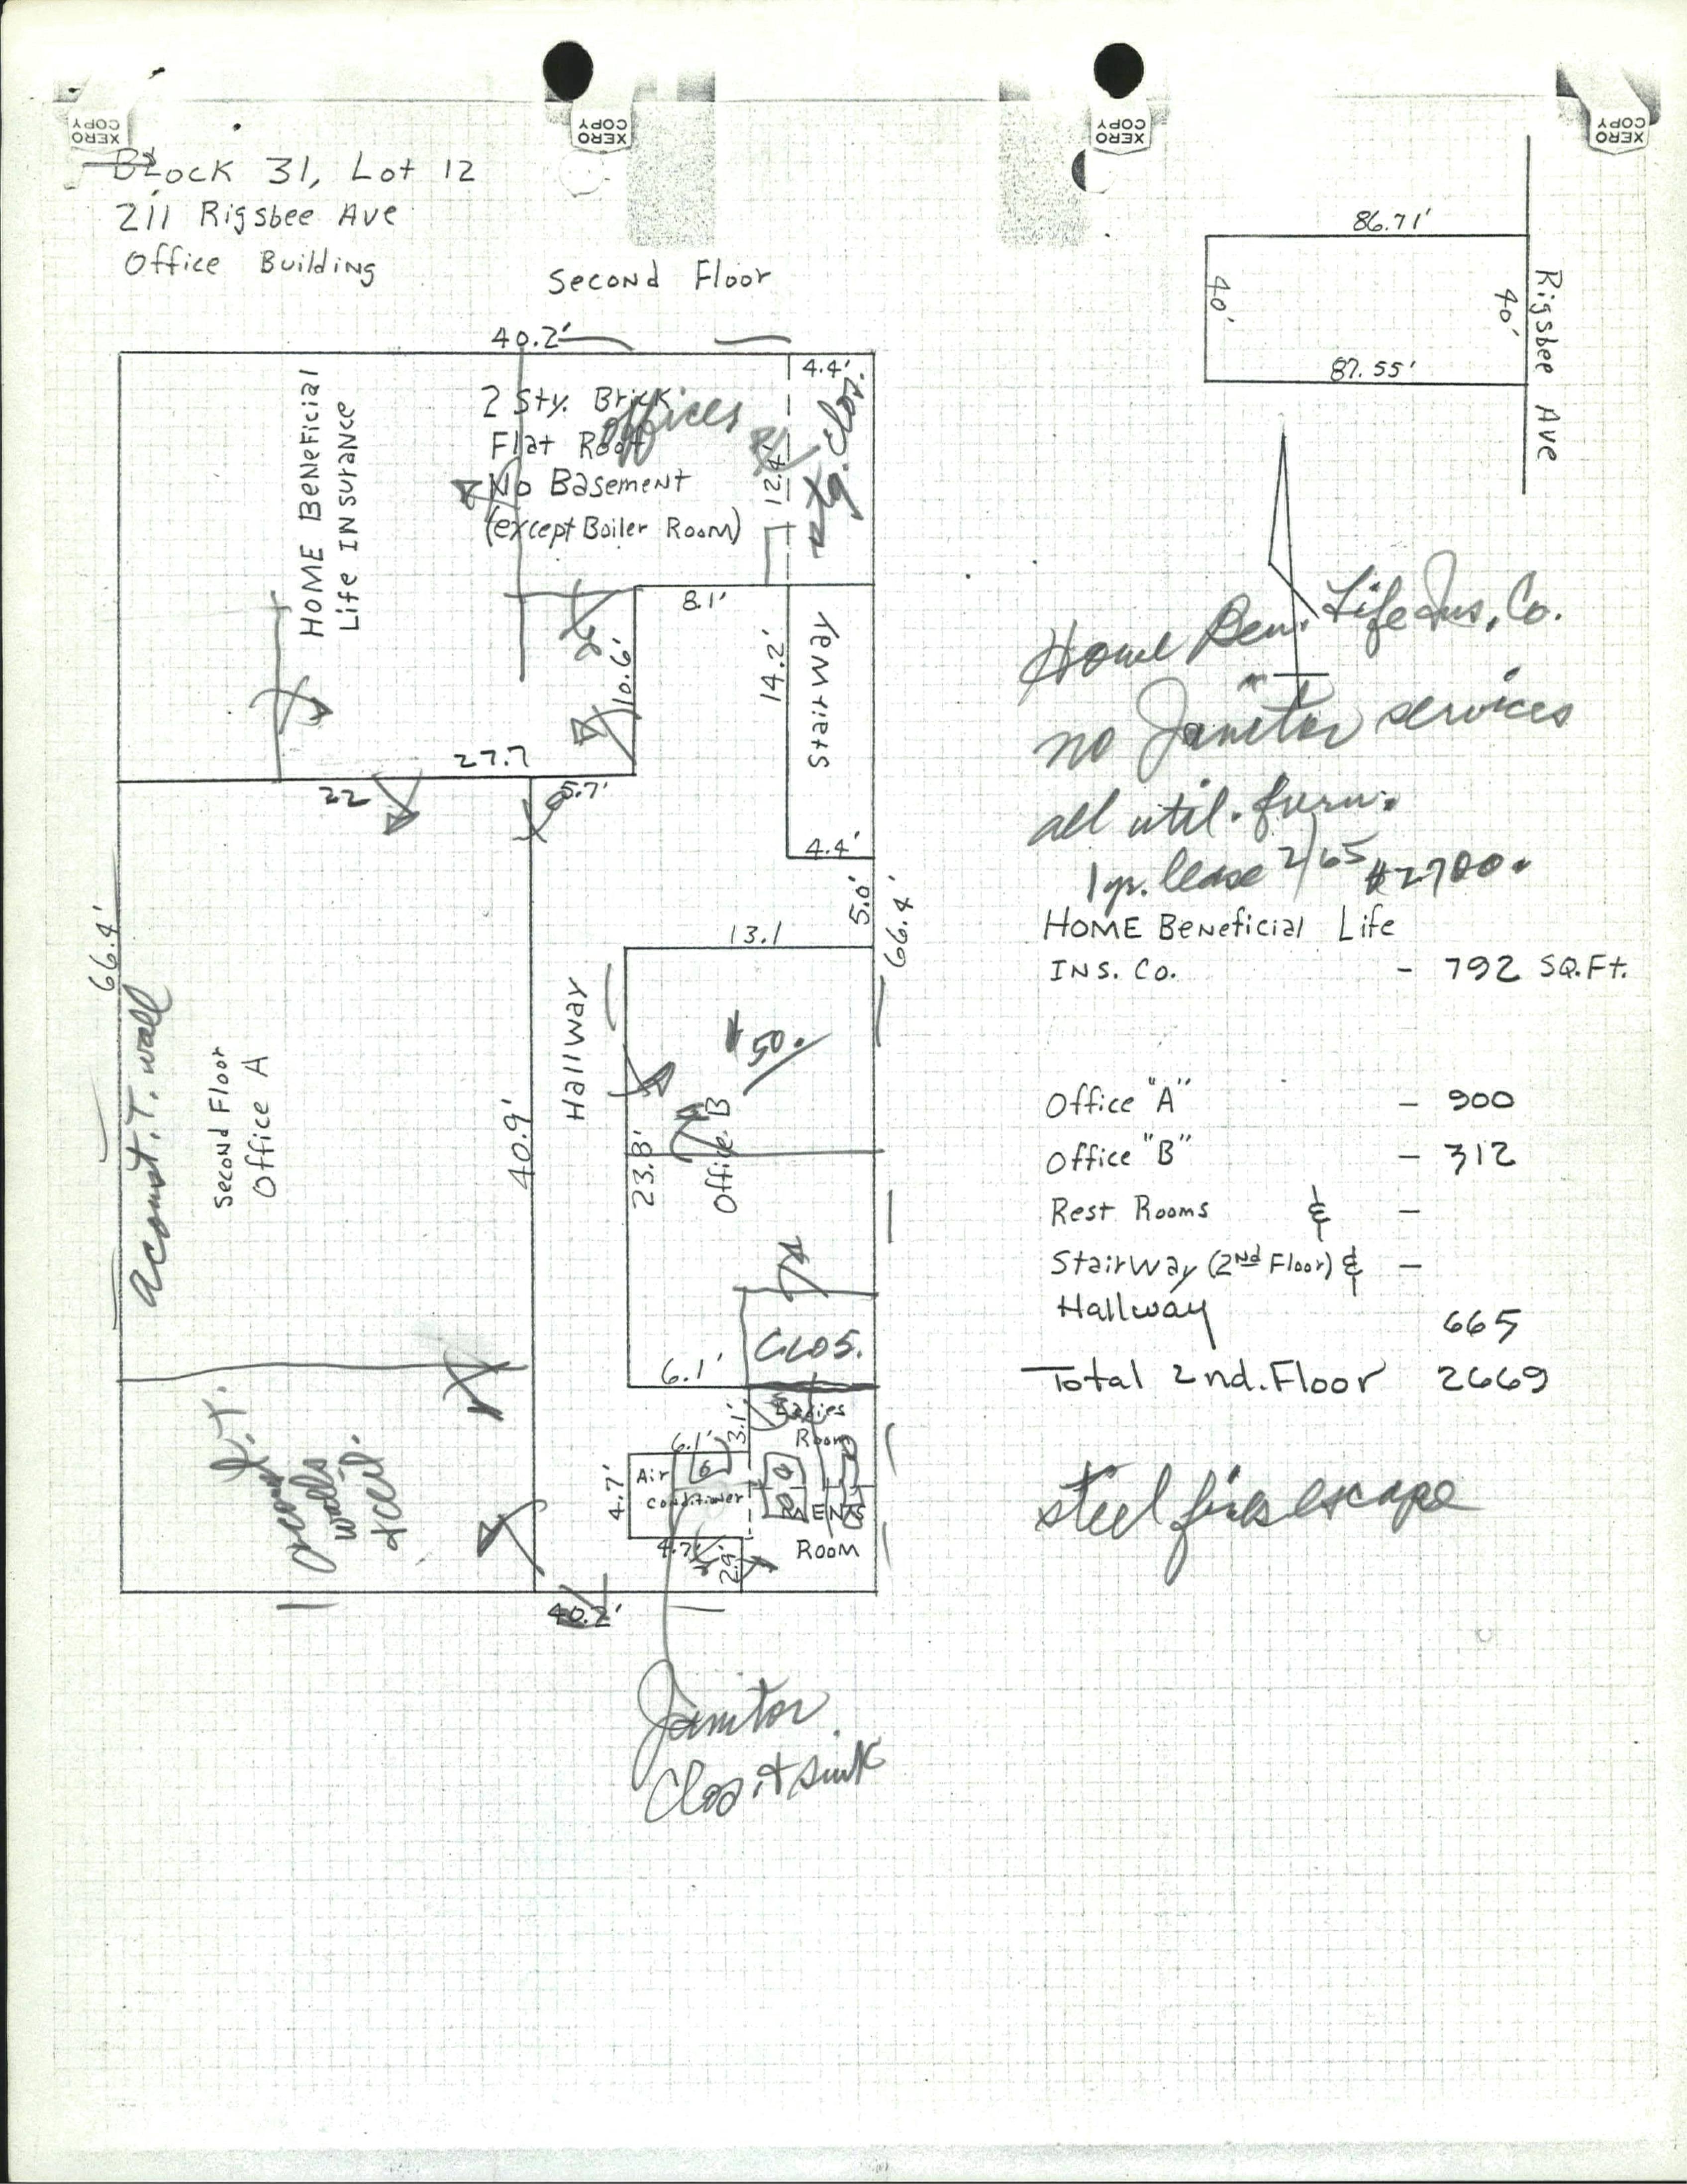 XERO COPY
XERO COPY
XERO COPY
XERO COPY
Block 31, Lot 12
211 Rigsbee Ave
Office Building
Second Floor
86.71'
40'
40'
87.55'
Rigsbee Ave
40.2'
4.4'
HOME Beneficial
Life INSURANCE
2 Sty. Brick
Flat Roof
No Basement
(except Boiler Room)
offices
12.4'
clos.
8.1'
10.6'
14.2'
Stairway
27.7
22
5.7'
4.4'
5.0'
66.4'
66.4'
13.1
Acoust. T. wall
Second Floor
Office A
40.9'
Hallway
$50.
23.8'
Office B
Clos.
6.1'
Ladies
Room
3.1'
6.1'
Air
Conditioner
4.7'
MENS
ROOM
4.7'
2.9'
A.T.
walls
& ceil.
40.2'
Janitor
Clos. & sink
Home Ben. Life Ins. Co.
no Janitor services
all util. furn.
1 yr. lease 2/65 $2700.
HOME Beneficial Life
INS. Co. - 792 SQ.Ft.
Office "A" - 900
Office "B" - 312
Rest Rooms & -
Stairway (2nd Floor) & -
Hallway 665
Total 2nd. Floor 2669
steel fire escape